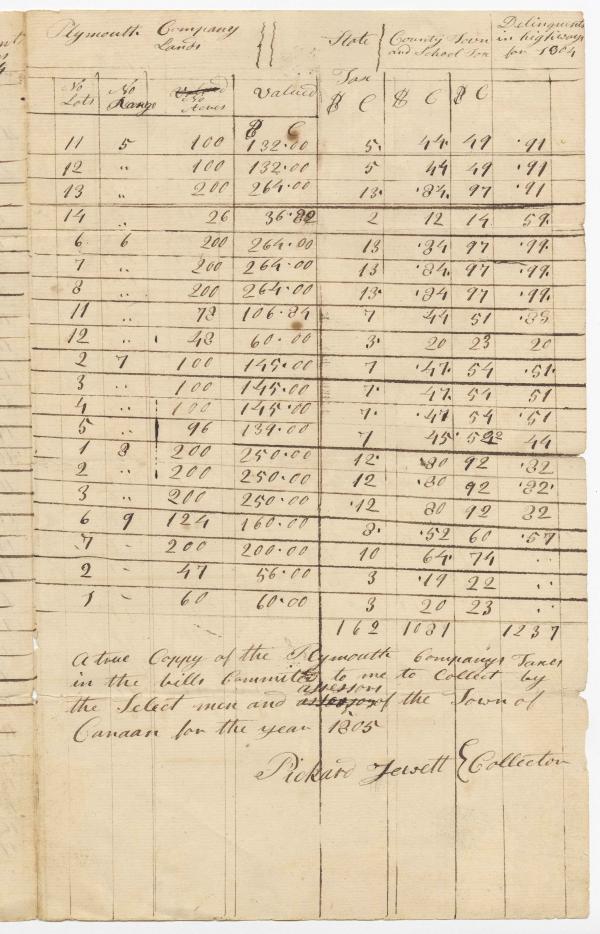 Plymouth Company Lands State Tax County Town and School Tax Delinquents in highways for 1804
No Lots No Range No Acres Valued $ C $ C $ C
$ C
11 5 100 132.00 5. 44. 49 .91
12 " 100 132.00 5 44 49 .91
13 " 200 264.00 13. .84. 97 .91
14 " 26 36.82 2 12 14 59
6 6 200 264.00 13 .84 97 .99
7 " 200 264.00 13 .84. 97 .99
8 " 200 264.00 13. .84 97 .99
11 " 78 106.84 7 44 51 .83
12 " 48 60.00 3. 20 23 20
2 7 100 145.00 7 .47. 54 .51.
3 " 100 145.00 7. 47. 54 51
4 " 100 145.00 7. .47 54 .51
5 " 96 139.00 7 45. 52 44
1 8 200 250.00 12. .80 92 .82
2 " 200 250.00 12 .80 92 .82.
3 " 200 250.00 .12 80 92 82
6 9 124 160.00 8. .52 60 .57
7 - 200 200.00 10 64. 74 "
2 - 47 56.00 3 .19 22 "
1 - 60 60.00 3 20 23 "
162 1081 1237
A true Copy of the Plymouth Companys Taxes
in the bills Committed to me to Collect by
assessors
the Select men and of the Town of
Canaan for the year 1805
Pickard Jewett { Collector